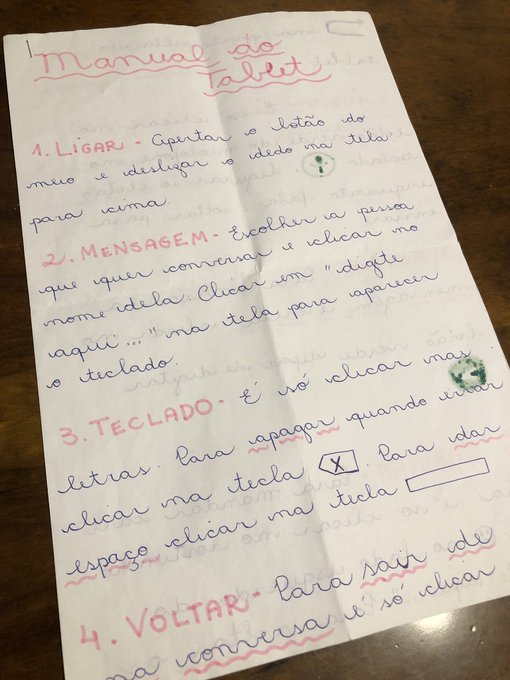 Manual do
Tablet
1. LIGAR - Apertar o botão do
meio e deslizar o dedo na tela
para cima.
2. MENSAGEM - Escolher a pessoa
que quer conversar e clicar no
nome dela. Clicar em "digite
aqui..." na tela para aparecer
o teclado.
3. TECLADO - É só clicar nas
letras. Para apagar quando errar
clicar na tecla X. Para dar
espaço clicar na tecla
4. VOLTAR - Para sair de
na conversa é só clicar